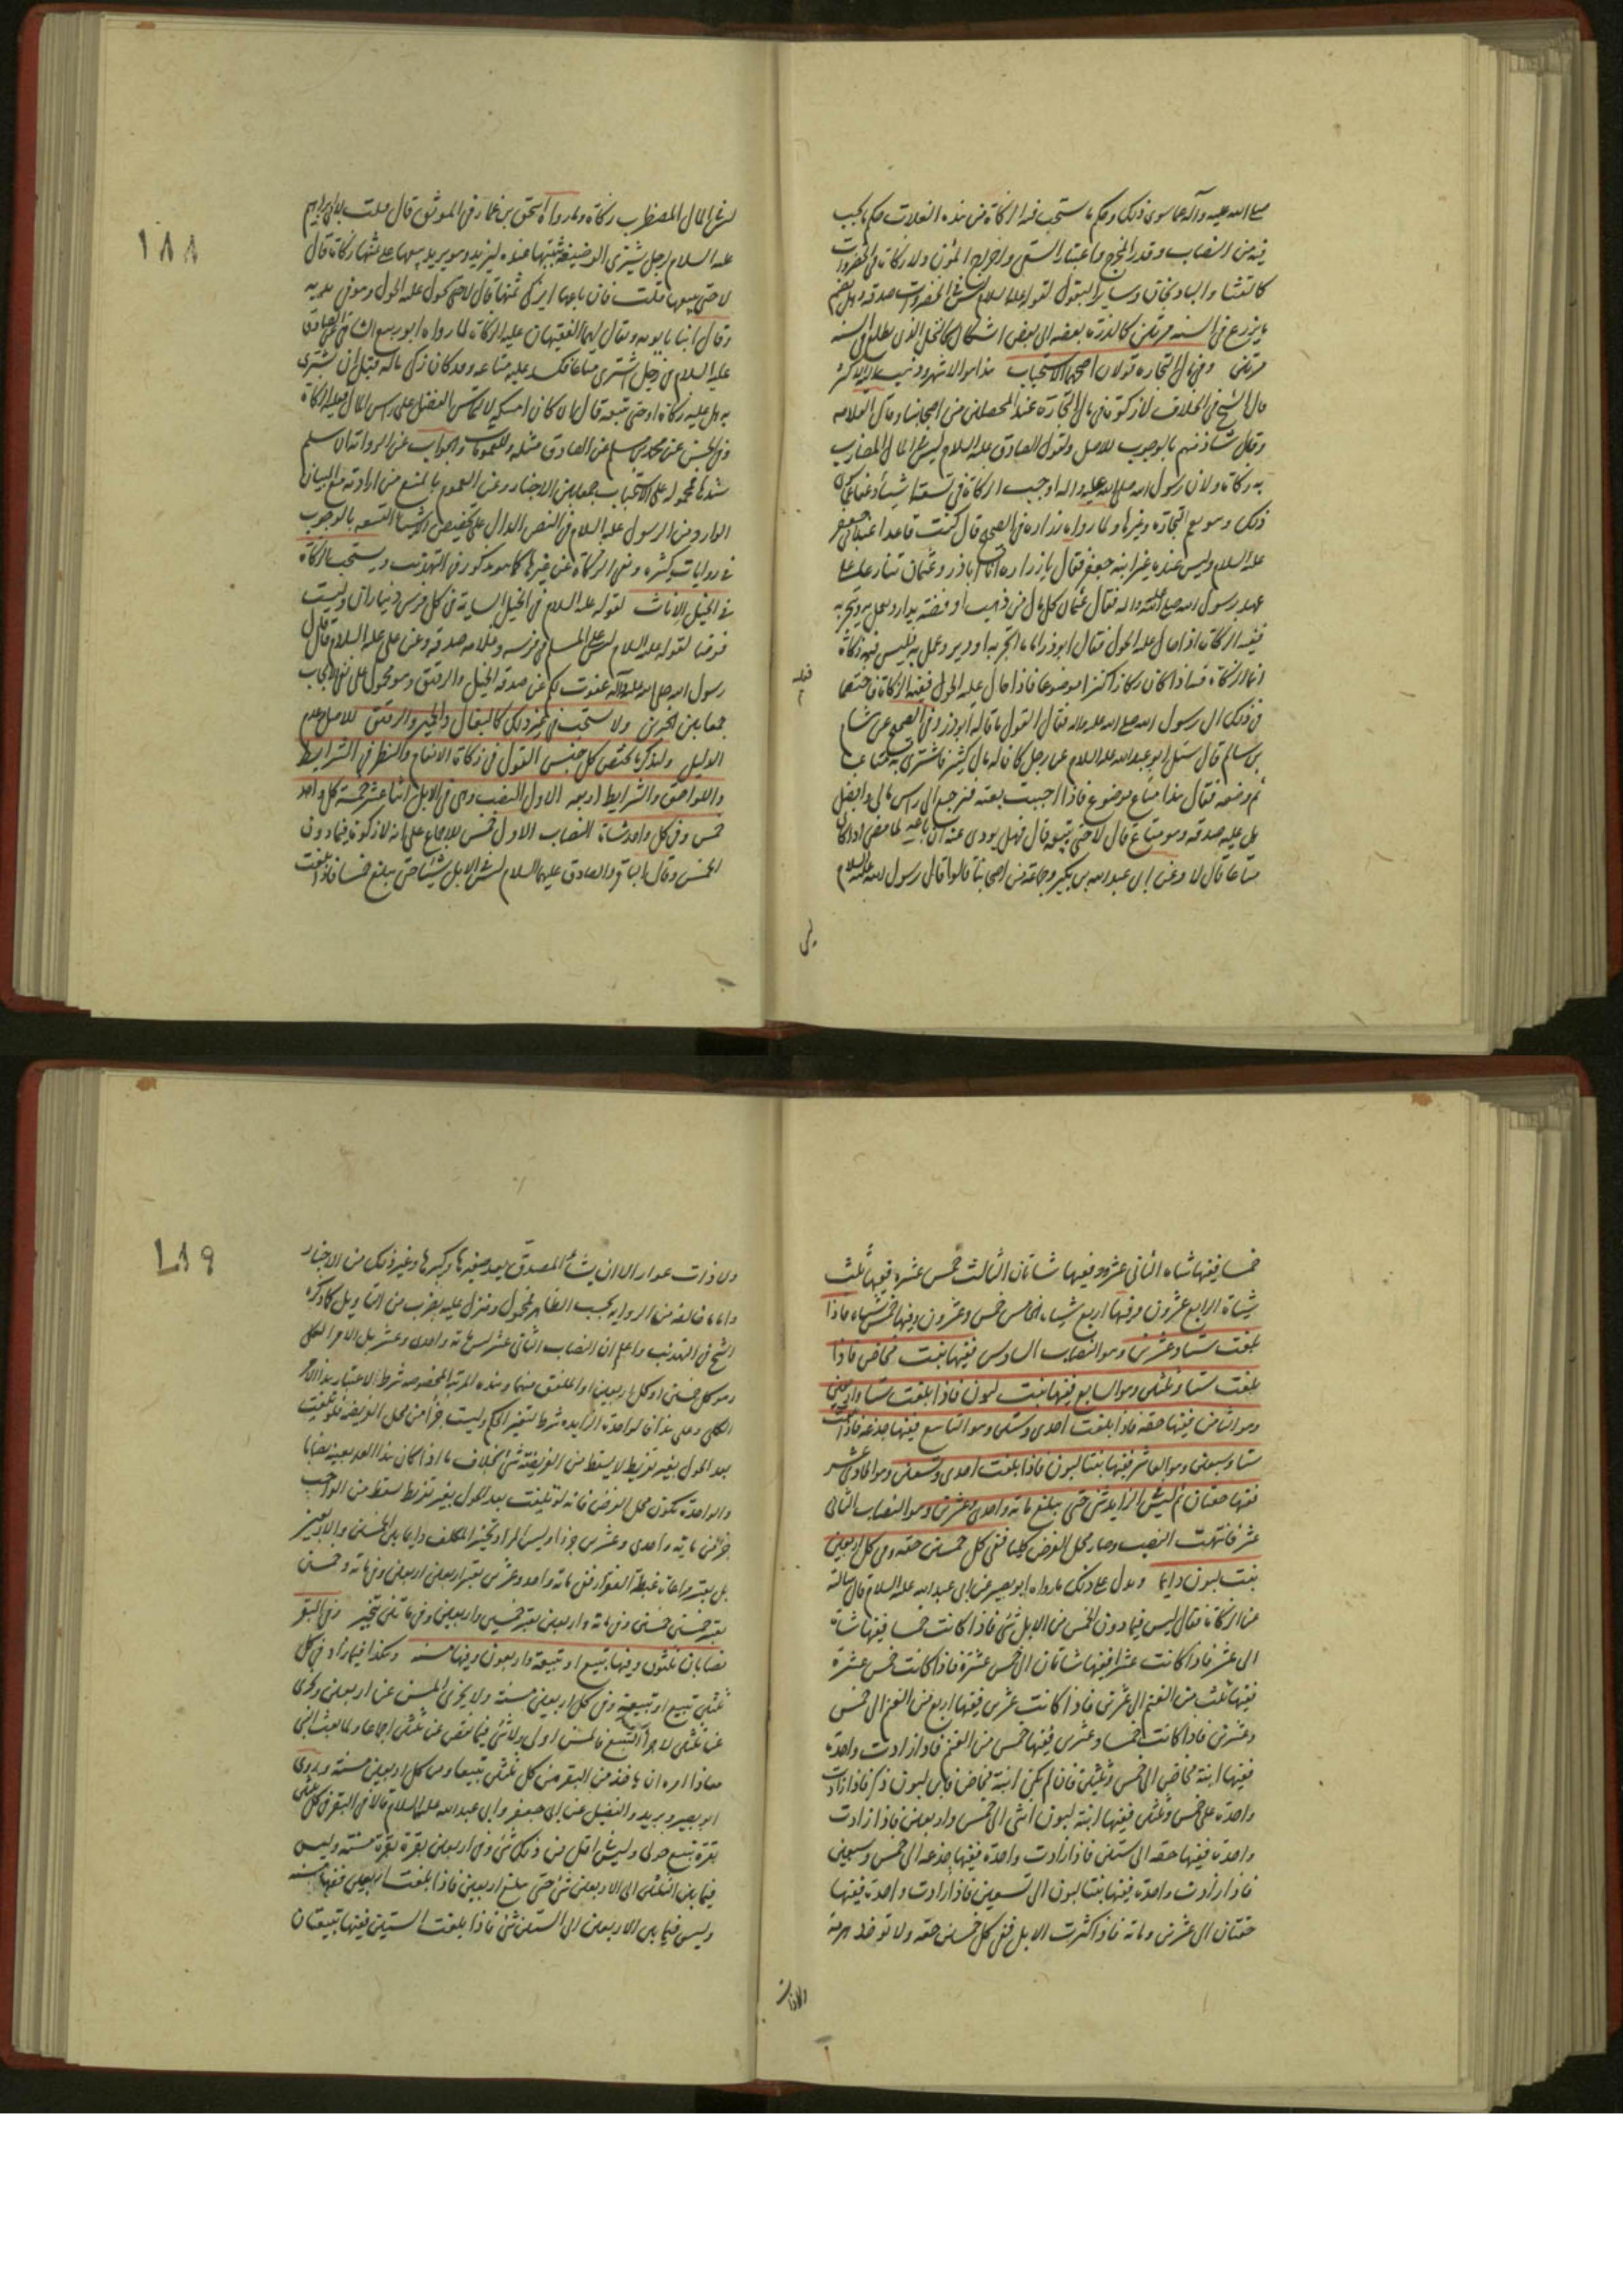 صلى الله عليه وآله عما سوى ذلك وحكم ما يستحب فيه الزكاة من هذه الغلات حكم ما يجب
فيه من النصاب وقدر المخرج واعتبار السقي واخراج المؤن ولا زكاة في الخضروات
كالقثاء والباذنجان وساير البقول لقوله عليه السلام ليس في الخضروات صدقة وهل يضم
ما يزرع في السنه مرتين كالذرة بعضه الى بعض اشكال كالنخل الذي يطلع في السنه
مرتين وفي مال التجاره قولان اصحهما الاستحباب هذا هو الاشهر وذهب اليه الاكثر
قال الشيخ في الخلاف لا زكوة في مال التجارة عند المحصلين من اصحابنا وقال العلامه
وقال شاذ منهم بالوجوب للاصل ولقول الصادق عليه السلام ليس على المال المضارب
به زكاة ولان رسول الله صلى الله عليه واله اوجب الزكاة في تسعة اشياء وعفا عما
ذلك وهو يعم التجاره وغيرها ولما رواه زراره في الصحيح قال كنت قاعدا عند ابي جعفر
عليه السلام وليس عنده غير ابنه جعفر فقال يا زراره ان ابا ذر وعثمان تنازعا على
عهد رسول الله صلى الله عليه واله فقال عثمان كل مال من ذهب او فضه يدار ويعمل به ويتجر به
ففيه الزكاة اذا حال عليه الحول فقال ابو ذر اما ما اتجر به او دير وعمل به فليس فيه زكاة
انما الزكاة فيه اذا كان ركازا كنزا موضوعا فاذا حال عليه الحول ففيه الزكاة فاختصما
في ذلك الى رسول الله صلى الله عليه واله فقال القول ما قاله ابو ذر وفي الصحيح عن هشام
بن سالم قال سئل ابو عبد الله عليه السلام عن رجل كان له مال كثير فاشترى به متاعا
ثم وضعه فقال هذا متاع موضوع فاذا احببت بعته فيرجع الي راس مالي وافضل
هل عليه صدقه وهو متاع قال لا حتى يبيعه قال فهل يودي عنه ان باعه لما مضى اذا كان
متاعا قال لا وعن ابي عبد الله بن بكير وجماعة من اصحابنا قالوا قال رسول الله عليه السلام
ليس
١٨٨
ليس في المال المضطرب زكاة ولما رواه اسحق بن عمار في الموثق قال قلت لابي ابراهيم
عليه السلام الرجل يشتري الوصيفة يثبتها عنده ليزيد وهو يريد بيعها على ثمنها زكاة قال
لا حتى يبيعها قلت فان باعها ايزكي ثمنها قال لا حتى يحول عليه الحول وهو في يديه
وقال ابنا بابويه ويقال لهما الفقيهان عليه الزكاة لما رواه ابو ربيع الشامي عن الصادق
عليه السلام في رجل اشترى متاعا فكسد عليه متاعه وقد كان زكى ماله قبل ان يشتري
به هل عليه زكاة او حتى يبيعه قال ان كان امسكه لالتماس الفضل على راس المال فعليه الزكاة
وفي الحسن عن محمد بن مسلم عن الصادق مثله وللعمومات والجواب عن الروايتان سلم
سندها محموله على الاستحباب جمعا بين الاخبار وعن العموم بالمنع من ارادته مع البيان
الوارد من الرسول عليه السلام في النص الدال على تخصيص الاشياء التسعه بالوجوب
في روايات كثيره ونفى الزكاة عن غيرها كما هو مذكور في التهذيب ويستحب الزكاة
في الخيل الاناث لقوله عليه السلام في الخيل السايمة في كل فرس ديناران وليست
فرضا لقوله عليه السلام ليس على المسلم في فرسه وغلامه صدقة وعن علي عليه السلام قال قال
رسول الله صلى الله عليه وآله عفوت لكم عن صدقه الخيل والرقيق وهو محمول على نفي الايجاب
جمعا بين الخبرين ولا يستحب في غير ذلك كالبغال والحمير والرقيق للاصل وعدم
الدليل ولنذكر ما يختص كل جنس القول في زكاة الانعام والنظر في الشرايط
واللواحق والشرايط اربعه الاول النصب وهي في الابل اثنا عشر خمسة كل واحد
خمس وفي كل واحد شاة النصاب الاول خمس للاجماع على انه لا زكوة فيما دون
الخمس وقال الباقر والصادق عليهما السلام ليس في الابل شيء حتى يبلغ خمسا فاذا بلغت
خمسا ففيها شاه الثاني عشر وفيها شاتان الثالث خمس عشره ففيها ثلث
شياه الرابع عشرون وفيها اربع شياه الخامس خمس وعشرون وفيها خمس شياه فاذا
بلغت ستا وعشرين وهو النصاب السادس ففيها بنت مخاض فاذا
بلغت ستا وثلثين وهو السابع ففيها بنت لبون فاذا بلغت ستا واربعين
وهو الثامن ففيها حقه فاذا بلغت احدى وستين وهو التاسع ففيها جذعه فاذا بلغت
ستا وسبعين وهو العاشر ففيها بنتا لبون فاذا بلغت احدى وتسعين وهو الحادي عشر
ففيها حقتان ثم ليس في الزايد شيء حتى يبلغ مائه واحدى وعشرين وهو النصاب الثاني
عشر فانتهت النصب وصار محل الفرض كليا ففي كل خمسين حقه وفي كل اربعين
بنت لبون دايما ويدل على ذلك ما رواه ابو بصير عن ابي عبد الله عليه السلام قال سالته
عن الزكاة فقال ليس فيما دون الخمس من الابل شيء فاذا كانت خمسا ففيها شاة
الى عشر فاذا كانت عشرا ففيها شاتان الى خمس عشرة فاذا كانت خمس عشرة
ففيها ثلث من الغنم الى عشرين فاذا كانت عشرين ففيها اربع من الغنم الى خمس
وعشرين فاذا كانت خمسا وعشرين ففيها خمس من الغنم فاذا زادت واحدة
ففيها ابنة مخاض الى خمس وثلثين فان لم يكن ابنة مخاض فابن لبون ذكر فاذا زادت
واحدة على خمس وثلثين ففيها ابنة لبون انثى الى خمس واربعين فاذا زادت
واحدة ففيها حقه الى ستين فاذا زادت واحدة ففيها جذعه الى خمس وسبعين
فاذا زادت واحدة ففيها بنتا لبون الى تسعين فاذا زادت واحدة ففيها
حقتان الى عشرين ومائه فاذا كثرت الابل ففي كل خمسين حقه ولا تؤخذ هرمة
ولا ذات
١٨٩
ولا ذات عوار الا ان يشاء المصدق يعد صغيرها وكبيرها وغير ذلك من الاخبار
واما ما خالفه من الروايه بحسب الظاهر فمحمول ومنزل عليه بضرب من التاويل كما ذكره
الشيخ في التهذيب واعلم ان النصاب الثاني عشر ليس مائه واحدى وعشر بل الامر الكلي
وهو كل خمسين او كل اربعين او الملفق منهما وهذه المرتبة المخصوصه شرط لاعتبار هذا الامر
الكلي وعلى هذا فالواحدة الزايده شرط لتغير الحكم وليست جزأ من محل الفريضه فلو تلفت
بعد الحول بغير تفريط لا يسقط من الفريضة شيء بخلاف ما اذا كان هذا العدد بعينه نصابا
والواحدة تكون محل الفرض فانه لو تلفت بعد الحول بغير تفريط سقط من الواجب
جزء من مايه واحدى وعشرين جزءا وليس المراد تخير المكلف دايما بين الخمسين والاربعين
بل يعتبر مراعاة غبطة الفقراء ففي مائه واحد وعشرين يعتبر اربعين اربعين وفي مائة وخمسين
يعتبر خمسين خمسين وفي مائه واربعين يعتبر خمسين واربعين وفي مائتين يتخير وفي البقر
نصابان ثلثون وفيها تبيع او تبيعة واربعون وفيها مسنه وهكذا فيما زاد في كل
ثلثين تبيع او تبيعة وفي كل اربعين مسنة ولا يجزى المسن عن اربعين ويجزى
عن ثلثين لاجزاء التبيع فالمسن اولى ولا شيء فيما نقص عن ثلثين اجماعا ولما بعث النبي
معاذا امره ان ياخذ من البقر من كل ثلثين تبيعا ومن كل اربعين مسنة وروى
ابو بصير وبريد والفضيل عن ابي جعفر وابي عبد الله عليهما السلام قالا في البقر في كل ثلثين
بقرة تبيع حولي وليس في اقل من ذلك شيء وفي اربعين بقرة بقرة مسنة وليس
فيما بين الثلثين الى الاربعين شيء حتى يبلغ اربعين فاذا بلغت اربعين ففيها مسنه
وليس فيما بين الاربعين الى الستين شيء فاذا بلغت الستين ففيها تبيعتان